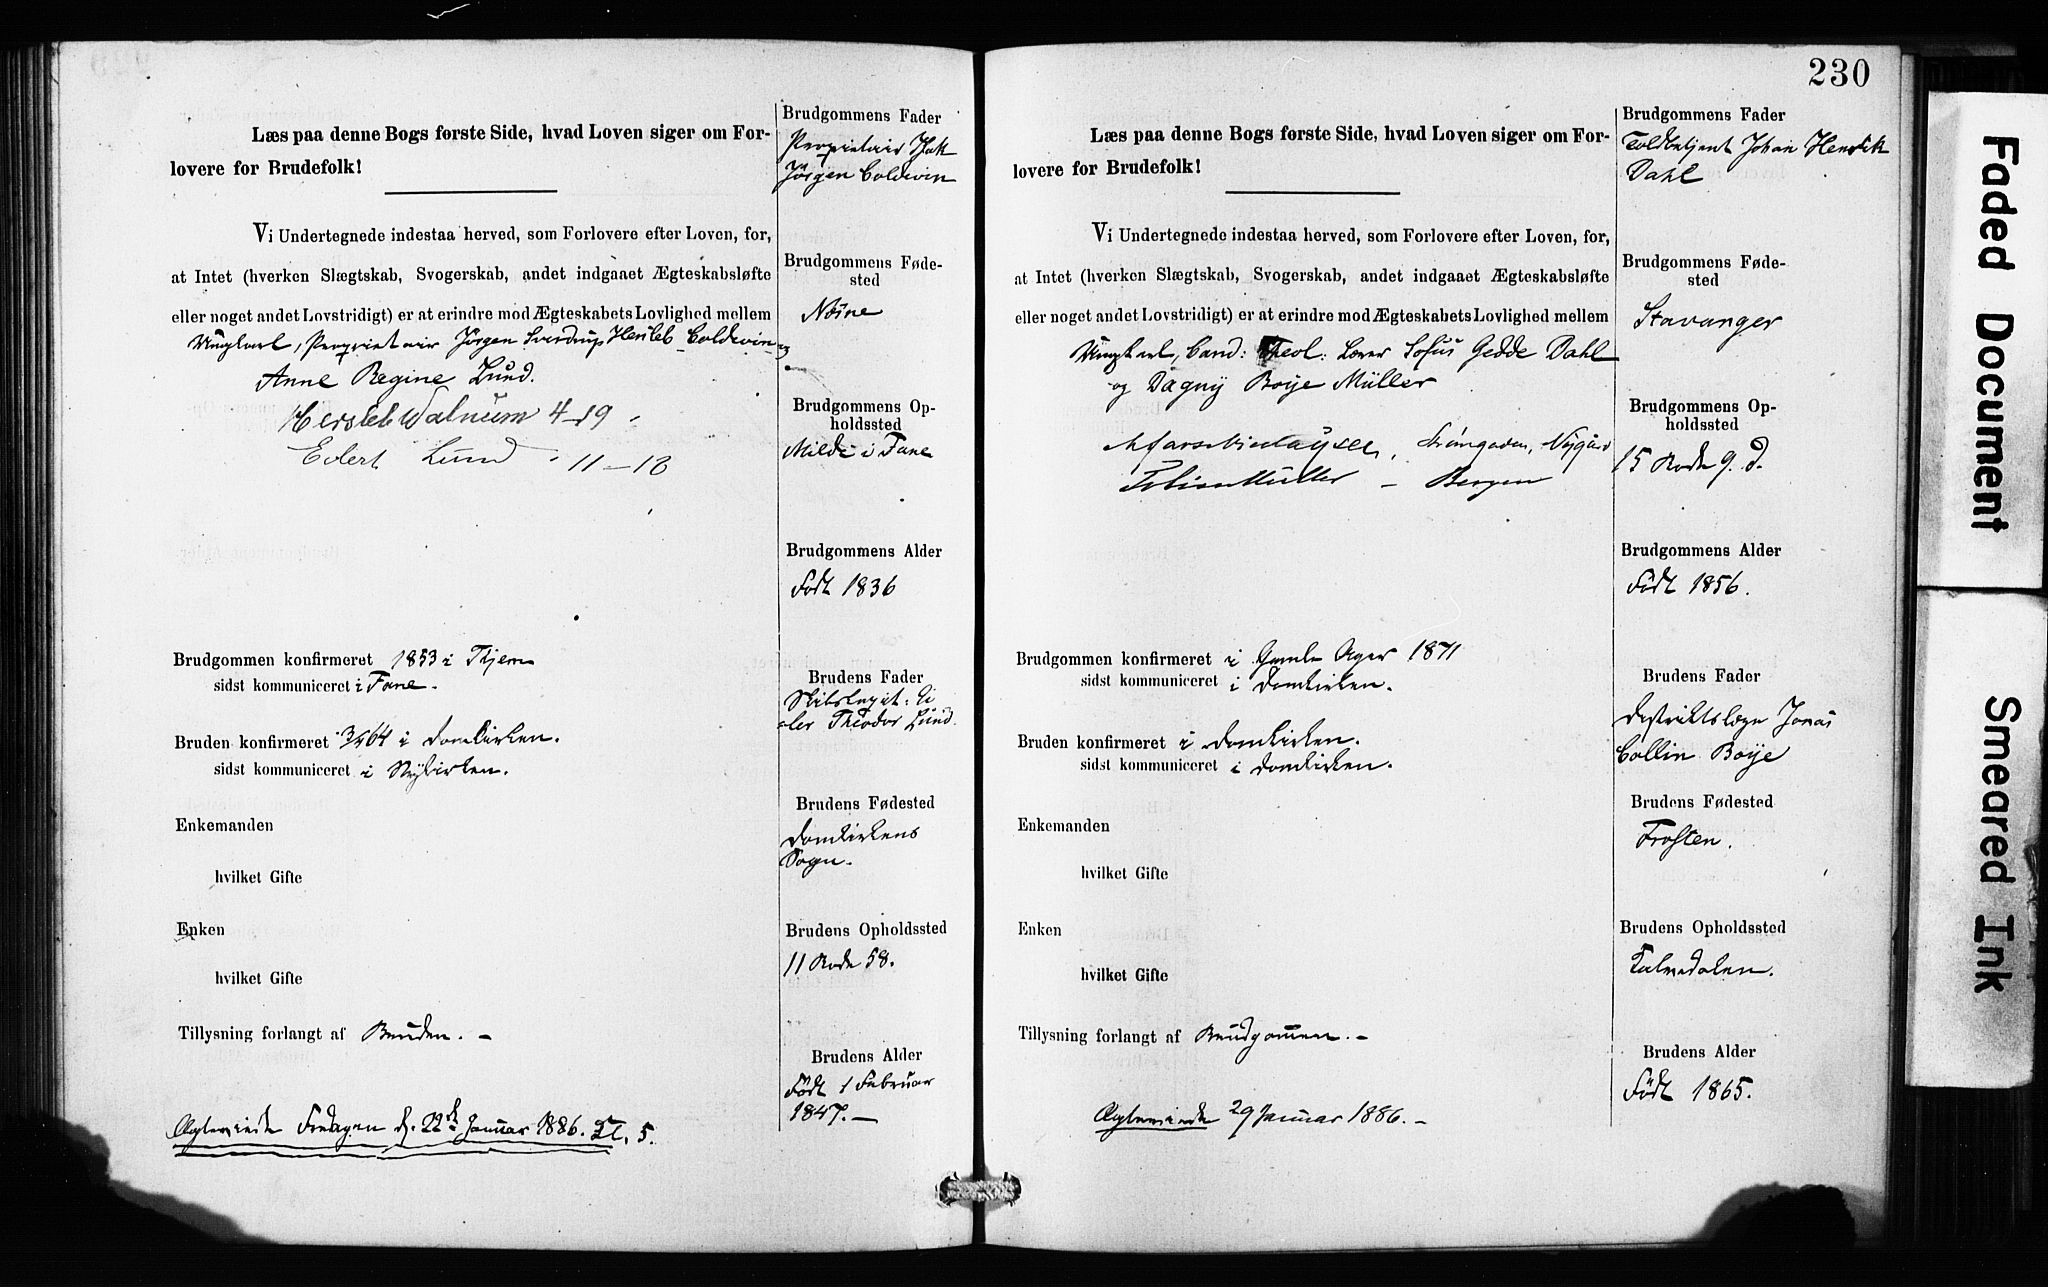 Læs paa denne Bogs første Side, hvad Loven siger om For-
lovere for Brudefolk!
Vi Undertegnede indestaa herved, som Forlovere efter Loven, for,
at Intet (hverken Slægtskab, Svogerskab, andet indgaaet Ægteskabsløfte
eller noget andet Lovstridigt) er at erindre mod Ægteskabets Lovlighed mellem
Ungkarl, Proprietair Jörgen Sverdrup Hersleb Coldevin og
Anne Regine Lund.
Hersleb Walnum 4-19
Edert Lund 11-18
Brudgommen konfirmeret 1853 i
sidst kommuniceret i Fane.
Bruden konfirmeret 3/4 64 i Domkirken.
sidst kommuniceret i Nykirken.
Enkemanden
hvilket Gifte
Enken
hvilket Gifte
Tillysning forlangt af Bruden. -
Ægteviede Fredagen d. 22de Januar 1886. Kl. 5.
Brudgommens Fader
Proprietair
Jörgen Coldevin
Brudgommens Føde-
sted
Brudgommens Op-
holdssted
Milde i Fane
Brudgommens Alder
Født 1836
Brudens Fader
Skibskapt:
Theodor Lund.
Brudens Fødested
Domkirkens
Sogn.
Brudens Opholdssted
11 Rode 58.
Brudens Alder
Født 1 Februar
1847. -
230
Læs paa denne Bogs første Side, hvad Loven siger om For-
lovere for Brudefolk!
Vi Undertegnede indestaa herved, som Forlovere efter Loven, for,
at Intet (hverken Slægtskab, Svogerskab, andet indgaaet Ægteskabsløfte
eller noget andet Lovstridigt) er at erindre mod Ægteskabets Lovlighed mellem
Ungkarl, Cand: Theol: Lærer Sofus Gedde Dahl
og Dagny Boye Müller
Strömgaden, Nygård
Müller - Bergen
Brudgommen konfirmeret i Gamle Ager 1871
sidst kommuniceret i Domkirken.
Bruden konfirmeret i Domkirken.
sidst kommuniceret i Domkirken.
Enkemanden
hvilket Gifte
Enken
hvilket Gifte
Tillysning forlangt af Brudgommen. -
Ægteviede 29 Januar 1886. -
Brudgommens Fader
Toldbetjent Johan Henrik
Dahl
Brudgommens Føde-
sted
Stavanger
Brudgommens Op-
holdssted
15 Rode 9. d.
Brudgommens Alder
Født 1856.
Brudens Fader
Distriktslæge Jonas
Collin Boye
Brudens Fødested
Frosten.
Brudens Opholdssted
Kalvedalen.
Brudens Alder
Født 1865.
Faded Document
Smeared Ink